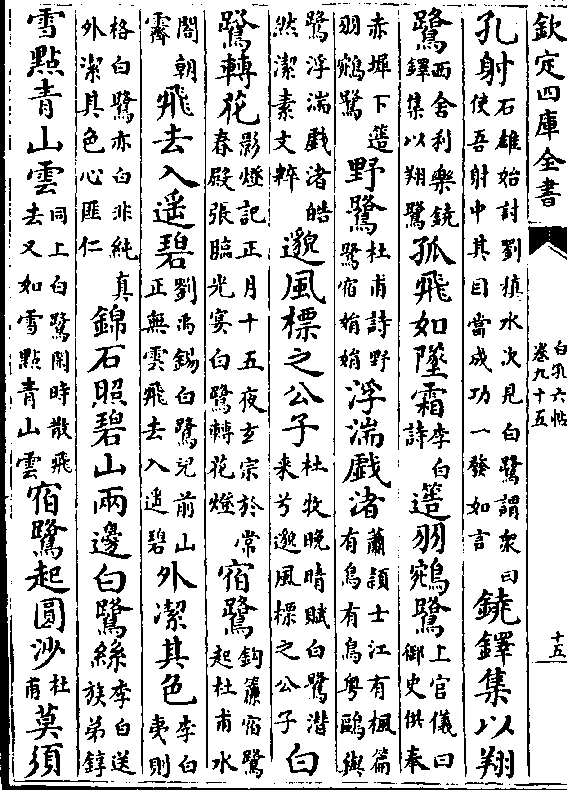 欽定四庫全書
白孔六帖
卷九十五
十五
孔射石雄始討劉稹水次見白鷺謂衆曰使吾射中其目當成功一發如言鐃鐸集以翔
鷺西舍利樂鐃鐸集以翔鷺孤飛如墜霜李白詩簉羽鵷鷺上官儀曰御史供奉
赤墀下簉羽鵷鷺野鷺杜甫詩野鷺宿娟娟浮湍戲渚蕭頴士江有楓篇有鳥有鳥粤鷗與
鷺浮湍戲渚皓然潔素文粹邈風標之公子杜牧晚晴賦白鷺潛来兮邈風標之公子白
鷺轉花影燈記正月十五夜玄宗於常春殿張臨光宴白鷺轉花燈宿鷺鈎簾宿鷺起杜甫水
閣朝霽飛去入遥碧劉禹錫白鷺兒前山正無雲飛去入遥碧外潔其色李白夷則
格白鷺亦白非純真外潔其色心匪仁錦石照碧山兩邊白鷺絲李白送族弟錞
雪點青山雲同上白鷺閑時散飛去又如雪點青山雲宿鷺起圓沙杜甫莫須